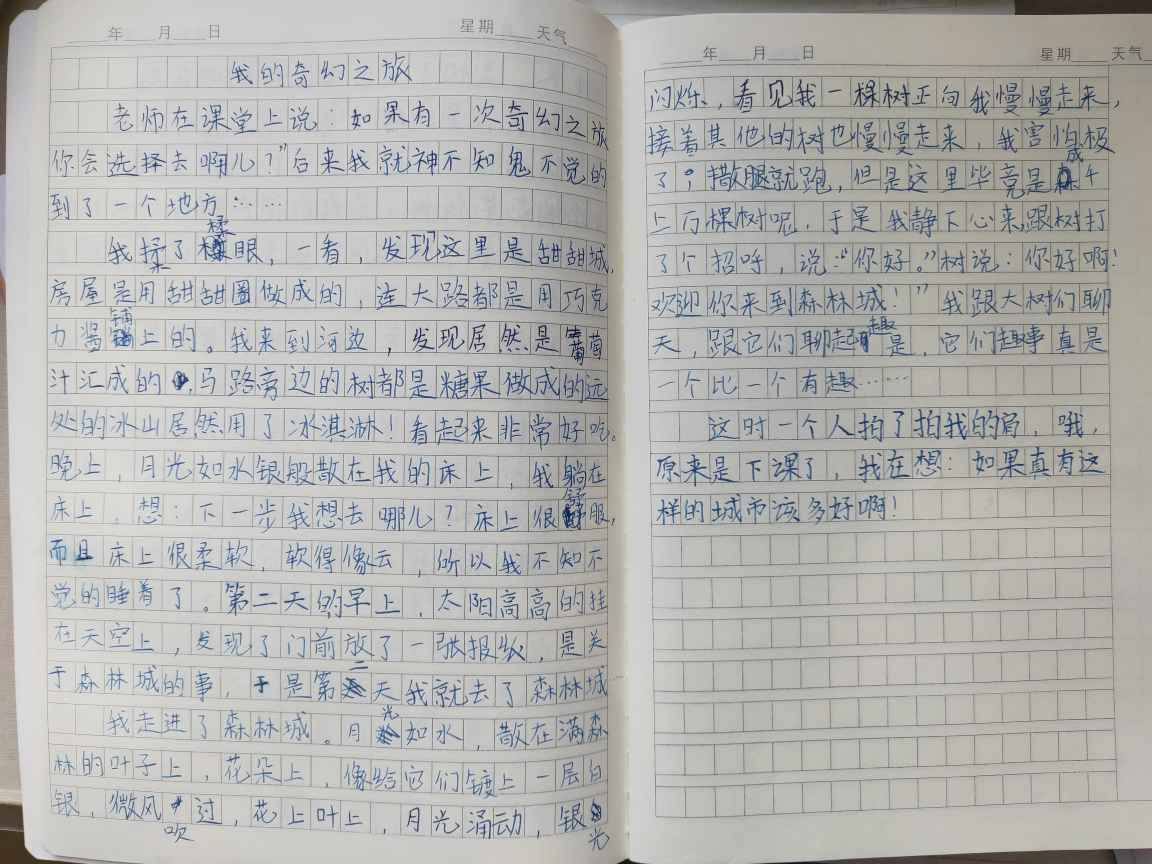 年 月 日 星期 天气
我的奇幻之旅
老师在课堂上说：如果有一次奇幻之旅
你会选择去啊儿？”后来我就神不知鬼不觉的
到了一个地方……
我揉了揉眼，一看，发现这里是甜甜城，
房屋是用甜甜圈做成的，连大路都是用巧克
力酱铺上的。我来到河边，发现居然是葡萄
汁汇成的，马路旁边的树都是糖果做成的远
处的冰山居然用了冰淇淋！看起来非常好吃。
晚上，月光如水银般散在我的床上，我躺在
床上，想：下一步我想去哪儿？床上很舒服，
而且床上很柔软，软得像云，所以我不知不
觉的睡着了。第二天的早上，太阳高高的挂
在天空上，发现了门前放了一张报纸，是关
于森林城的事，于是第二天我就去了森林城
我走进了森林城。月光如水，散在满森
林的叶子上，花朵上，像给它们镀上一层白
银，微风吹过，花上叶上，月光涌动，银光
年 月 日 星期 天气
闪烁，看见我一棵树正向我慢慢走来，
接着其他的树也慢慢走来，我害怕极
了，撒腿就跑，但是这里毕竟是成千
上万棵树呢，于是我静下心来，跟树打
了个招呼，说：“你好。”树说：你好啊！
欢迎你来到森林城！”我跟大树们聊
天，跟它们聊起趣事，它们趣事真是
一个比一个有趣……
这时一个人拍了拍我的肩，哦，
原来是下课了，我在想：如果真有这
样的城市该多好啊！